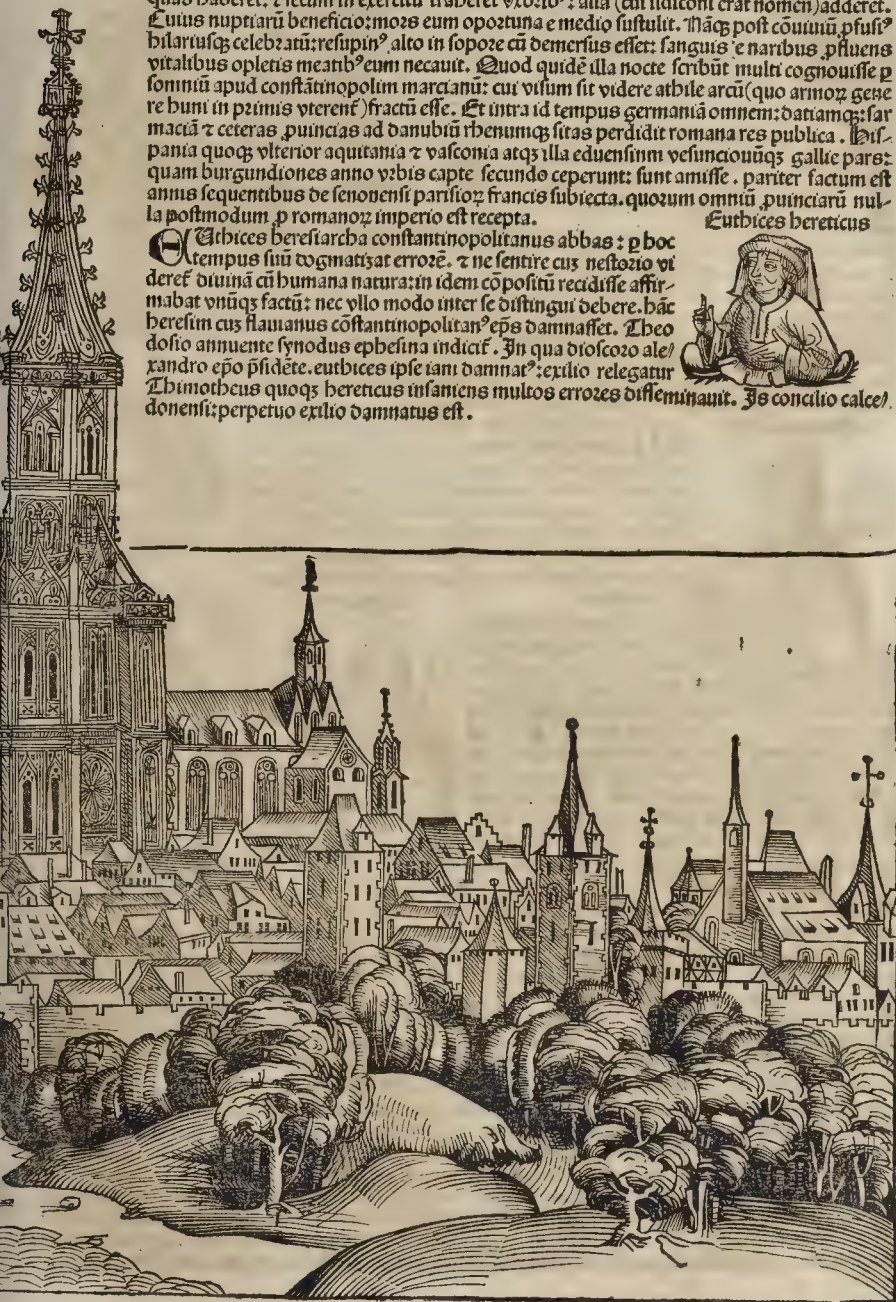 quas haberet: ⁊ secum in exercitu traheret vxorib⁹: alia (cui ildiconi erat nomen) adderet.
Cuius nuptiarū beneficio: mors eum oportuna e medio sustulit. Nāqꝫ post cōuiuiū ꝓfusi⁹
hilariusqꝫ celebratū: resupin⁹, alto in sopore cū demersus esset: sanguis e naribus ꝓfluens
vitalibus opletis meatib⁹ eum necauit. Quod quidē illa nocte scribūt multi cognouisse ꝑ
somniū apud constātinopolim marcianū: cui visum sit videre athile arcū (quo armoꝝ gene
re huni in primis vterent᷑) fractū esse. Et intra id tempus germaniā omnem: datiamqꝫ: sar
maciā ⁊ ceteras ꝓuincias ad danubiū rhenumqꝫ sitas perdidit romana res publica. His-
pania quoqꝫ vlterior aquitania ⁊ vasconia atqꝫ illa eduensium vesunciouūqꝫ gallie pars:
quam burgundiones anno vrbis capte secundo ceperunt: sunt amisse. pariter factum est
annis sequentibus de senonensi parisioꝝ francis subiecta. quorum omniū ꝓuinciarū nul-
la postmodum ꝑ romanoꝝ imperio est recepta.
Euthices hereticus
EUthices heresiarcha constantinopolitanus abbas: ꝑ hoc
tempus suū dogmatizat errorē. ⁊ ne sentire cuꝫ nestorio vi
deret᷑ diuinā cū humana natura: in idem cōpositū recidisse affir-
mabat vnūqꝫ factū: nec vllo modo inter se distingui debere. hāc
heresim cuꝫ flauianus cōstantinopolitan⁹ ep̄s damnasset. Theo
dosio annuente synodus ephesina indicit᷑. In qua dioscoro ale/
xandro ep̄o p̄sidēte. euthices ipse iam damnat⁹: exilio relegatur
Thimotheus quoqꝫ hereticus insaniens multos errores disseminauit. Is concilio calce/
donensi: perpetuo exilio damnatus est.